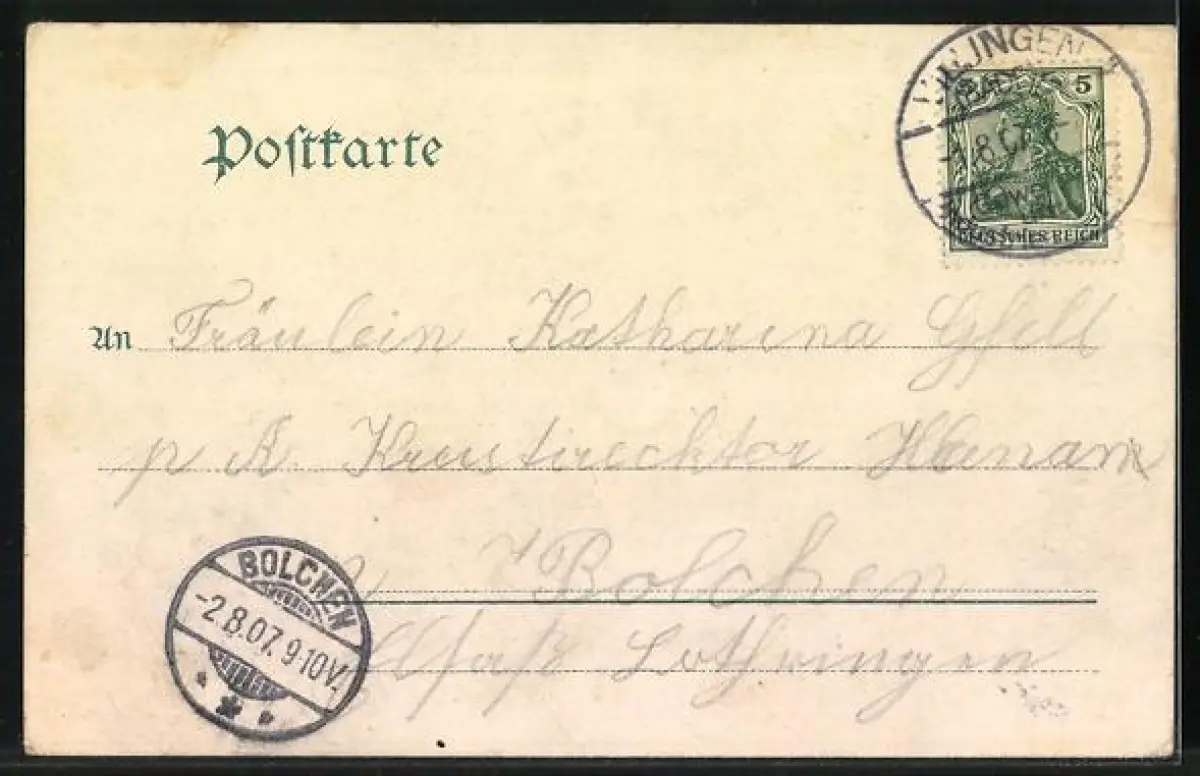 Postkarte
5
(BADEN)
DEUTSCHES REICH
An Fräulein Katharina Gsell
p A. Kreisdirecktor
Bolchen
Elsaß Lothringen
BOLCHEN
-2.8.07. 9-10V.